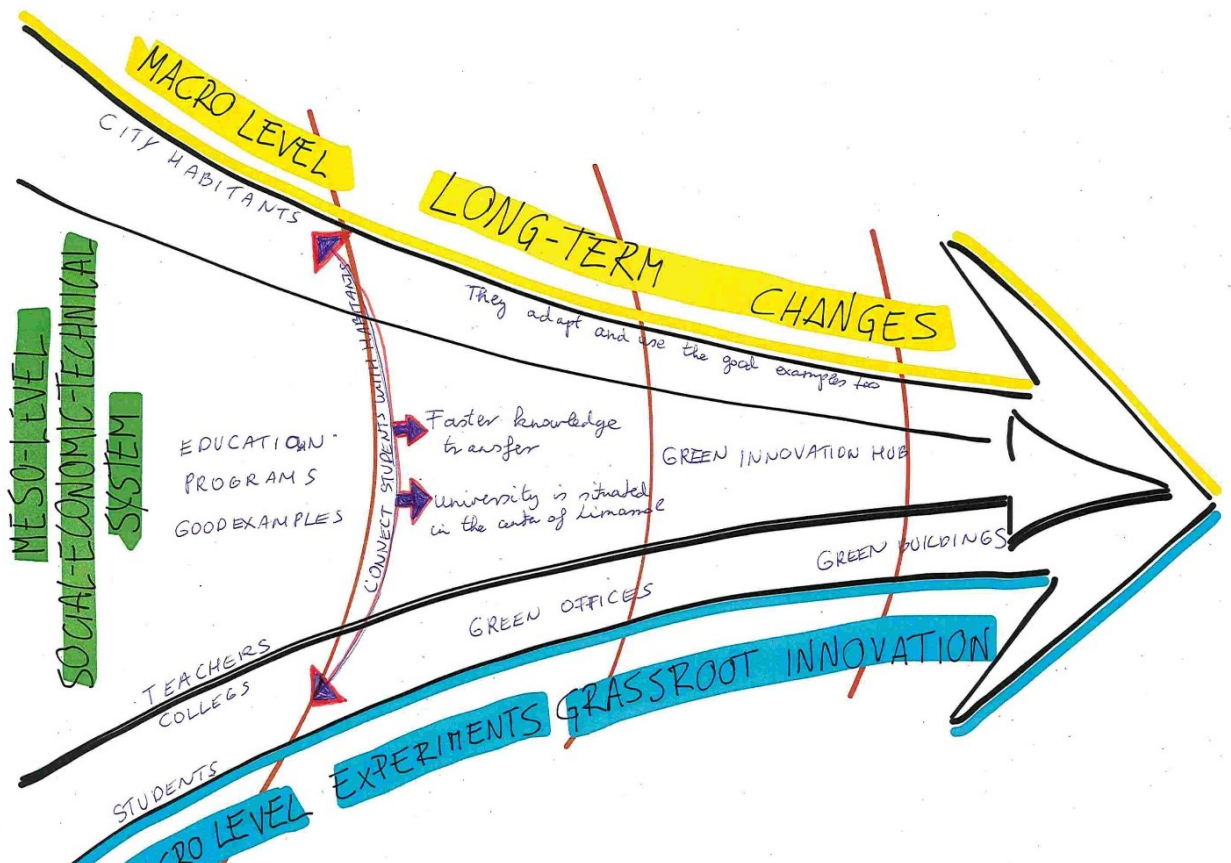 MACRO LEVEL
CITY HABITANTS
LONG-TERM CHANGES
They adapt and use the good examples too
MESO-LEVEL
SOCIAL-ECONOMIC-TECHNICAL
SYSTEM
EDUCATION
PROGRAMS
GOOD EXAMPLES
CONNECT STUDENTS WITH HABITANTS
Faster knowledge
transfer
University is situated
in the center of Limassol
GREEN INNOVATION HUB
GREEN BUILDINGS
GREEN OFFICES
TEACHERS
COLLEGS
STUDENTS
CRO LEVEL EXPERIMENTS GRASSROOT INNOVATION